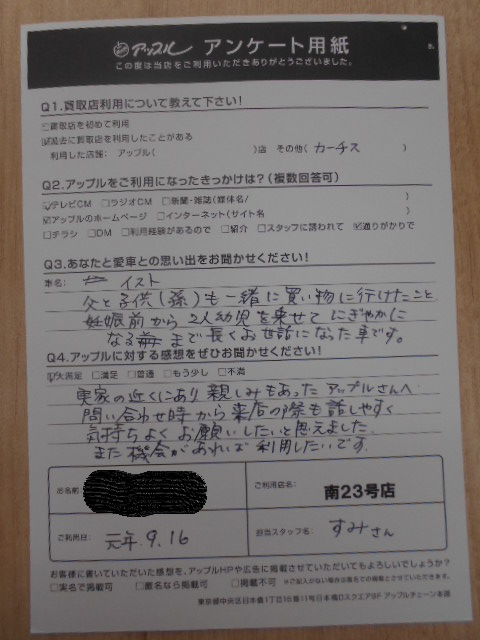 アップル アンケート用紙
この度は当店をご利用いただきありがとうございました。
Q1.買取店利用について教えて下さい!
□買取店を初めて利用
☑過去に買取店を利用したことがある
利用した店舗: アップル( )店 その他( カーチス )
Q2.アップルをご利用になったきっかけは?(複数回答可)
☑テレビCM □ラジオCM □新聞・雑誌(媒体名/ )
☑アップルのホームページ □インターネット(サイト名 )
□チラシ □DM □利用経験があるので □紹介 □スタッフに誘われて ☑通りがかりで
Q3.あなたと愛車との思い出をお聞かせください!
車名: イスト
父と子供(孫)も一緒に買い物に行けたこと
妊娠前から2人幼児を乗せてにぎやかに
なるまで長くお世話になった車です。
Q4.アップルに対する感想をぜひお聞かせください!
☑大満足 □満足 □普通 □もう少し □不満
実家の近くにあり親しみもあったアップルさんへ
問い合わせ時から来店の際も話しやすく
気持ちよくお願いしたいと思えました
また機会があれば利用したいです。
お名前:
ご利用店名: 南23号店
ご利用日: 元年9.16
担当スタッフ名: すみさん
お客様に書いていただいた感想を、アップルHPや広告に掲載させていただいてもよろしいでしょうか?
□実名で掲載可 □匿名なら掲載可 □掲載不可 ※ご記入がない場合は匿名での掲載とさせていただきます。
東京都中央区日本橋1丁目16番11号日本橋Dスクエア9F アップルチェーン本部